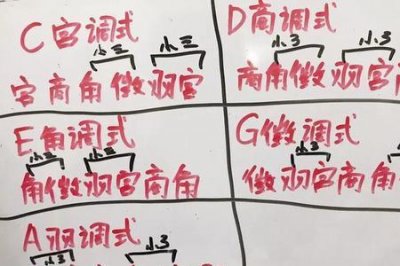 C宫调式
小三 小三
宫商角徵羽宫
D商调式
小3 小3
商角徵羽宫商
E角调式
小三 小三
角徵羽宫商角
G徵调式
小3
徵羽宫商角
A羽调式
小3 小3